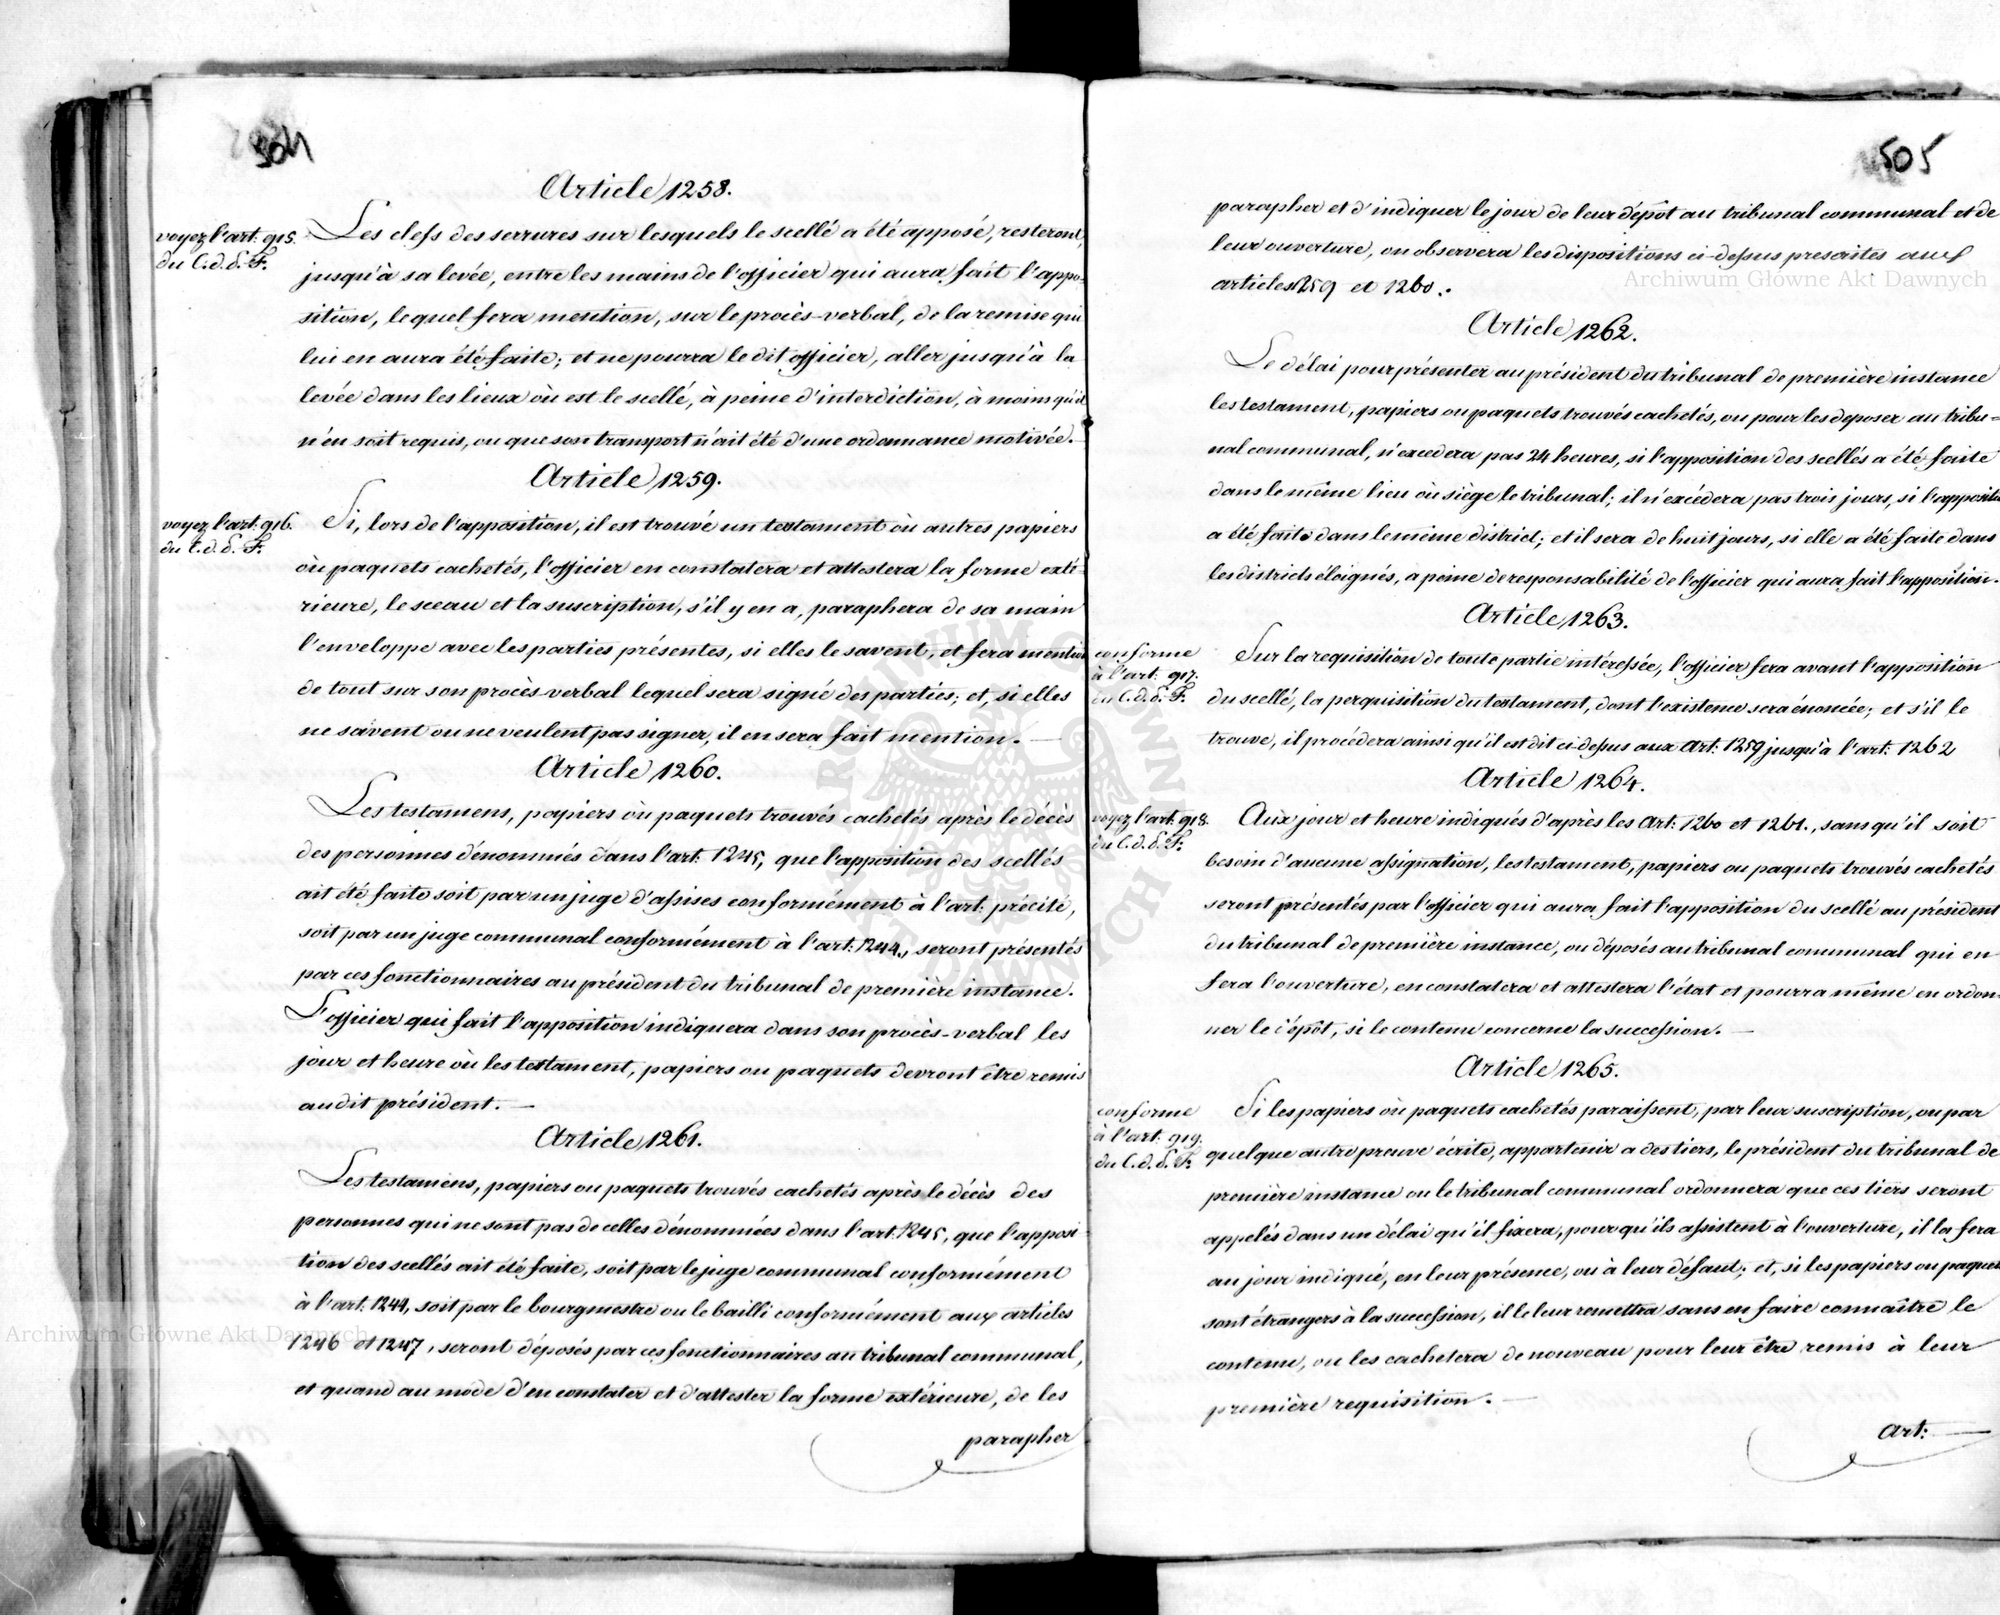 504
Article 1258.
voyez l'art: 915.
du C. d. d. F.
Les clefs des serrures sur lesquels le scellé a été apposé, resteront,
jusqu'à sa levée, entre les mains de l'officier qui aura fait l'appo-
sition, lequel fera mention, sur le procès-verbal, de la remise qui
lui en aura été faite; et ne pourra le dit officier, aller jusqu'à la
levée dans les lieux où est le scellé, à peine d'interdiction, à moins qu'il
n'en soit requis, ou que son transport n'ait été d'une ordonnance motivée.
Article 1259.
voyez l'art: 916.
du C. d. d. F.
Si, lors de l'apposition, il est trouvé un testament où autres papiers
où paquets cachetés, l'officier en constatera et attestera la forme exté-
rieure, le sceau et la suscription, s'il y en a, paraphera de sa main
l'enveloppe avec les parties présentes, si elles le savent, et fera mention
de tout sur son procès-verbal lequel sera signé des parties; et, si elles
ne savent ou ne veulent pas signer, il en sera fait mention. —
Article 1260.
Les testamens, papiers où paquets trouvés cachetés après le décès
des personnes dénommés dans l'art: 1245, que l'apposition des scellés
ait été faite soit par un juge d'assises conformément à l'art: précité,
soit par un juge communal conformément à l'art: 1244., seront présentés
par ces fonctionnaires au président du tribunal de première instance.
L'officier qui fait l'apposition indiquera dans son procès-verbal les
jour et heure où les testament, papiers ou paquets devront être remis
au dit président. —
Article 1261.
Les testamens, papiers ou paquets trouvés cachetés après le décès des
personnes qui ne sont pas de celles dénommées dans l'art: 1245, que l'apposi-
tion des scellés ait été faite, soit par le juge communal conformément
à l'art: 1244, soit par le bourgmestre ou le bailli conformément aux articles
1246 et 1247, seront déposés par ces fonctionnaires au tribunal communal,
et quand au mode d'en constater et d'attester la forme extérieure, de les
parapher
505
parapher et d'indiquer le jour de leur dépôt au tribunal communal et de
leur ouverture, on observera les dispositions ci-dessus prescrites aux
articles 1259 et 1260.
Article 1262.
Le délai pour présenter au président du tribunal de première instance
les testament, papiers ou paquets trouvés cachetés, ou pour les deposer au tribu-
nal communal, n'excedera pas 24 heures, si l'apposition des scellés a été faite
dans le même lieu où siège le tribunal; il n'excédera pas trois jours, si l'appositi
a été faite dans le même district; et il sera de huit jours, si elle a été faite dans
les districts éloignés, à peine de responsabilité de l'officier qui aura fait l'apposition.
Article 1263.
conforme
à l'art: 917.
du C. d. d. F.
Sur la requisition de toute partie intéressée, l'officier fera avant l'apposition
du scellé, la perquisition du testament, dont l'existence sera énoncée; et s'il le
trouve, il procédera ainsi qu'il est dit ci-dessus aux art: 1259 jusqu'à l'art: 1262
Article 1264.
voyez l'art: 918.
du C. d. d. F.
Aux jour et heure indiqués d'après les art: 1260 et 1261., sans qu'il soit
besoin d'aucune assignation, les testament, papiers ou paquets trouvés cachetés
seront présentés par l'officier qui aura fait l'apposition du scellé au président
du tribunal de première instance, ou déposés au tribunal communal qui en
fera l'ouverture, en constatera et attestera l'état et pourra même en ordon-
ner le dépôt, si le contenu concerne la succession. —
Article 1265.
conforme
à l'art: 919.
du C. d. d. F.
Si les papiers où paquets cachetés paraissent, par leur suscription, ou par
quelque autre preuve écrite, appartenir a des tiers, le président du tribunal de
première instance ou le tribunal communal ordonnera que ces tiers seront
appelés dans un délai qu'il fixera, pour qu'ils assistent à l'ouverture, il la fera
au jour indiqué, en leur présence, ou à leur défaut; et, si les papiers ou paquets
sont étrangers à la succession, il le leur remettra sans en faire connaître le
contenu, ou les cachetera de nouveau pour leur être remis à leur
première requisition. —
Art:
Archiwum Główne Akt Dawnych
Archiwum Główne Akt Dawnych
ARCHIWUM GŁÓWNE AKT DAWNYCH